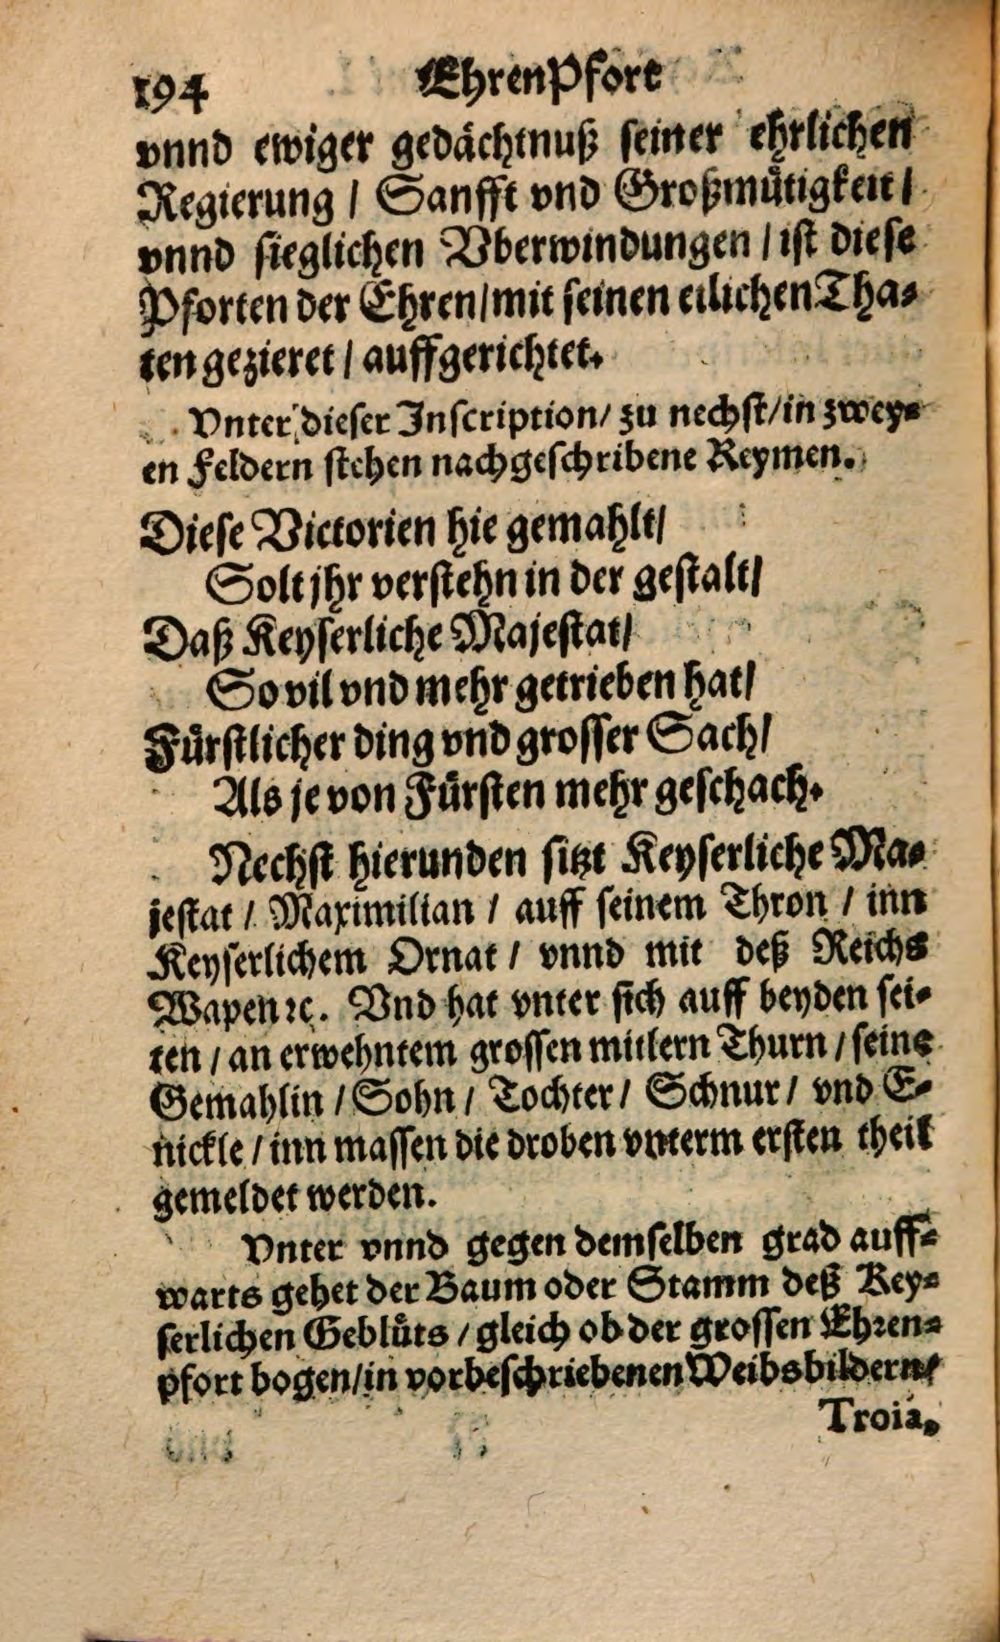 194 EhrenPfort
vnnd ewiger gedächtnuß seiner ehrlichen
Regierung / Sanfft vnd Großmütigkeit /
vnnd sieglichen Vberwindungen / ist diese
Pforten der Ehren / mit seinen etlichen Tha-
ten gezieret / auffgerichtet.
Vnter dieser Inscription / zu nechst / in zwey-
en Feldern stehen nachgeschribene Reymen.
Diese Victorien hie gemahlt /
Solt jhr verstehn in der gestalt /
Daß Keyserliche Majestat /
So vil vnd mehr getrieben hat /
Fürstlicher ding vnd grosser Sach /
Als je von Fürsten mehr geschach.
Nechst hierunden sitzt Keyserliche Ma-
jestat / Maximilian / auff seinem Thron / inn
Keyserlichem Ornat / vnnd mit deß Reichs
Wapen ꝛc. Vnd hat vnter sich auff beyden sei-
ten / an erwehntem grossen mitlern Thurn / seine
Gemahlin / Sohn / Tochter / Schnur / vnd E-
nickle / inn massen die droben vnterm ersten theil
gemeldet werden.
Vnter vnnd gegen demselben grad auff-
warts gehet der Baum oder Stamm deß Key-
serlichen Geblüts / gleich ob der grossen Ehren-
pfort bogen / in vorbeschriebenen Weibsbildern /
Troia,